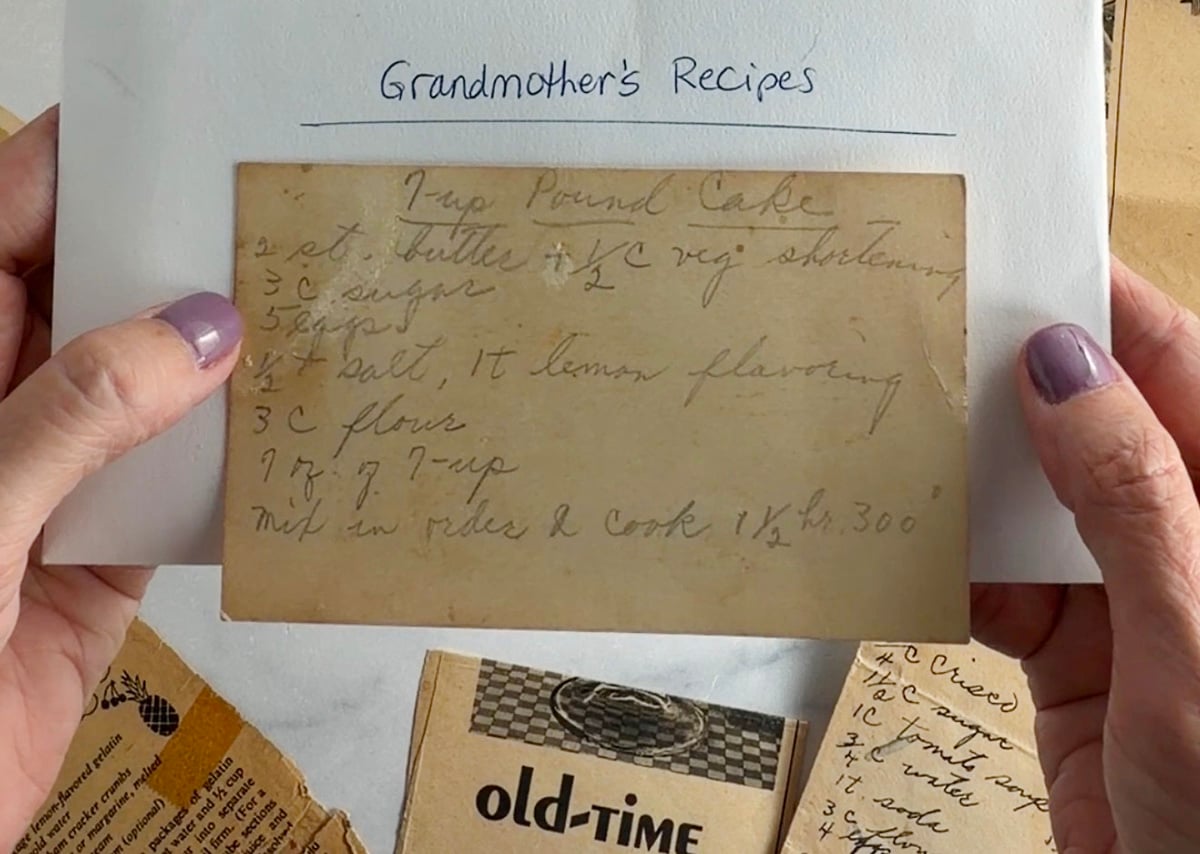 Grandmother's Recipes
7-up Pound Cake
2 st. butter + 1/2 C veg shortening
3 C sugar
5 eggs
1/2 t salt, 1t lemon flavoring
3 C flour
7 oz. of 7-up
Mix in order & cook 1 1/2 hr. 300°
age lemon-flavored gelatin
old water
ham cracker crumbs
or margarine, melted
eam (optional)
packages of gelatin
water and ½ cup
into separate
il firm. (For a
be sections
juice and
old-TIME
C Crisco
1 1/2 C sugar
1C tomato soup
3/4 C water
1t. soda
3 C flou
4